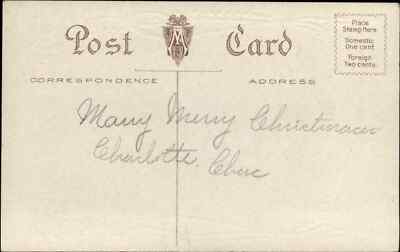 Post Card
Place
Stamp here
Domestic
One cent
Foreign
Two cents
CORRESPONDENCE
ADDRESS
Many Merry Christmases
Charlotte